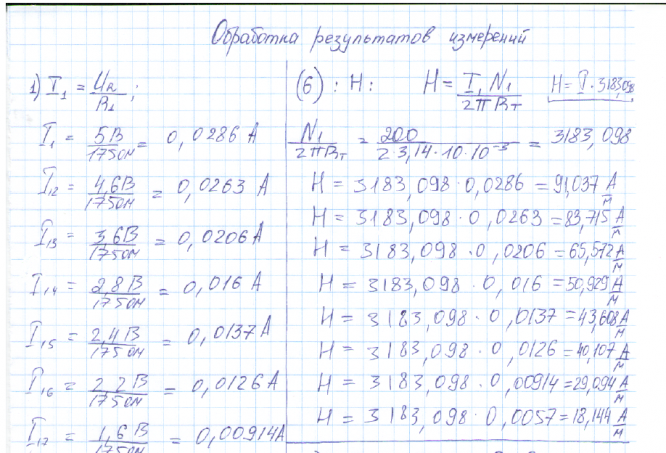 Обработка результатов измерений
1) I₁ = U_R / R₁ ;
I₁ = 5В / 175Ом = 0,0286 А
I₁₂ = 4,6В / 175Ом = 0,0263 А
I₁₃ = 3,6В / 175Ом = 0,0206 А
I₁₄ = 2,8В / 175Ом = 0,016 А
I₁₅ = 2,4В / 175Ом = 0,0137 А
I₁₆ = 2,2В / 175Ом = 0,0126 А
I₁₇ = 1,6В / 175Ом = 0,00914А
(6) : H : H = I₁ N₁ / 2πR_T H = I · 3183,098
N₁ / 2πR_T = 200 / 2·3,14·10·10⁻³ = 3183,098
H = 3183,098 · 0,0286 = 91,037 А/м
H = 3183,098 · 0,0263 = 83,715 А/м
H = 3183,098 · 0,0206 = 65,572 А/м
H = 3183,098 · 0,016 = 50,929 А/м
H = 3183,098 · 0,0137 = 43,608 А/м
H = 3183,098 · 0,0126 = 40,107 А/м
H = 3183,098 · 0,00914 = 29,094 А/м
H = 3183,098 · 0,0057 = 18,144 А/м